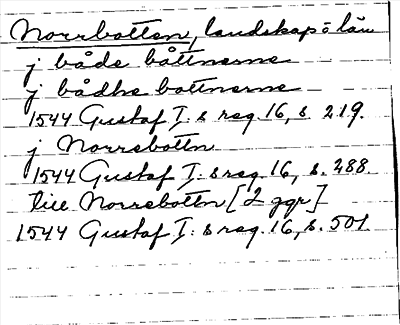 Norrbotten, landskap o län
j både båttnerne
j bådhe bottnerne
1544 Gustaf I:s reg. 16, s. 219.
j Norrebottn
1544 Gustaf I:s reg. 16, s. 288.
till Norrebottn [2 ggr]
1544 Gustaf I:s reg. 16, s. 501